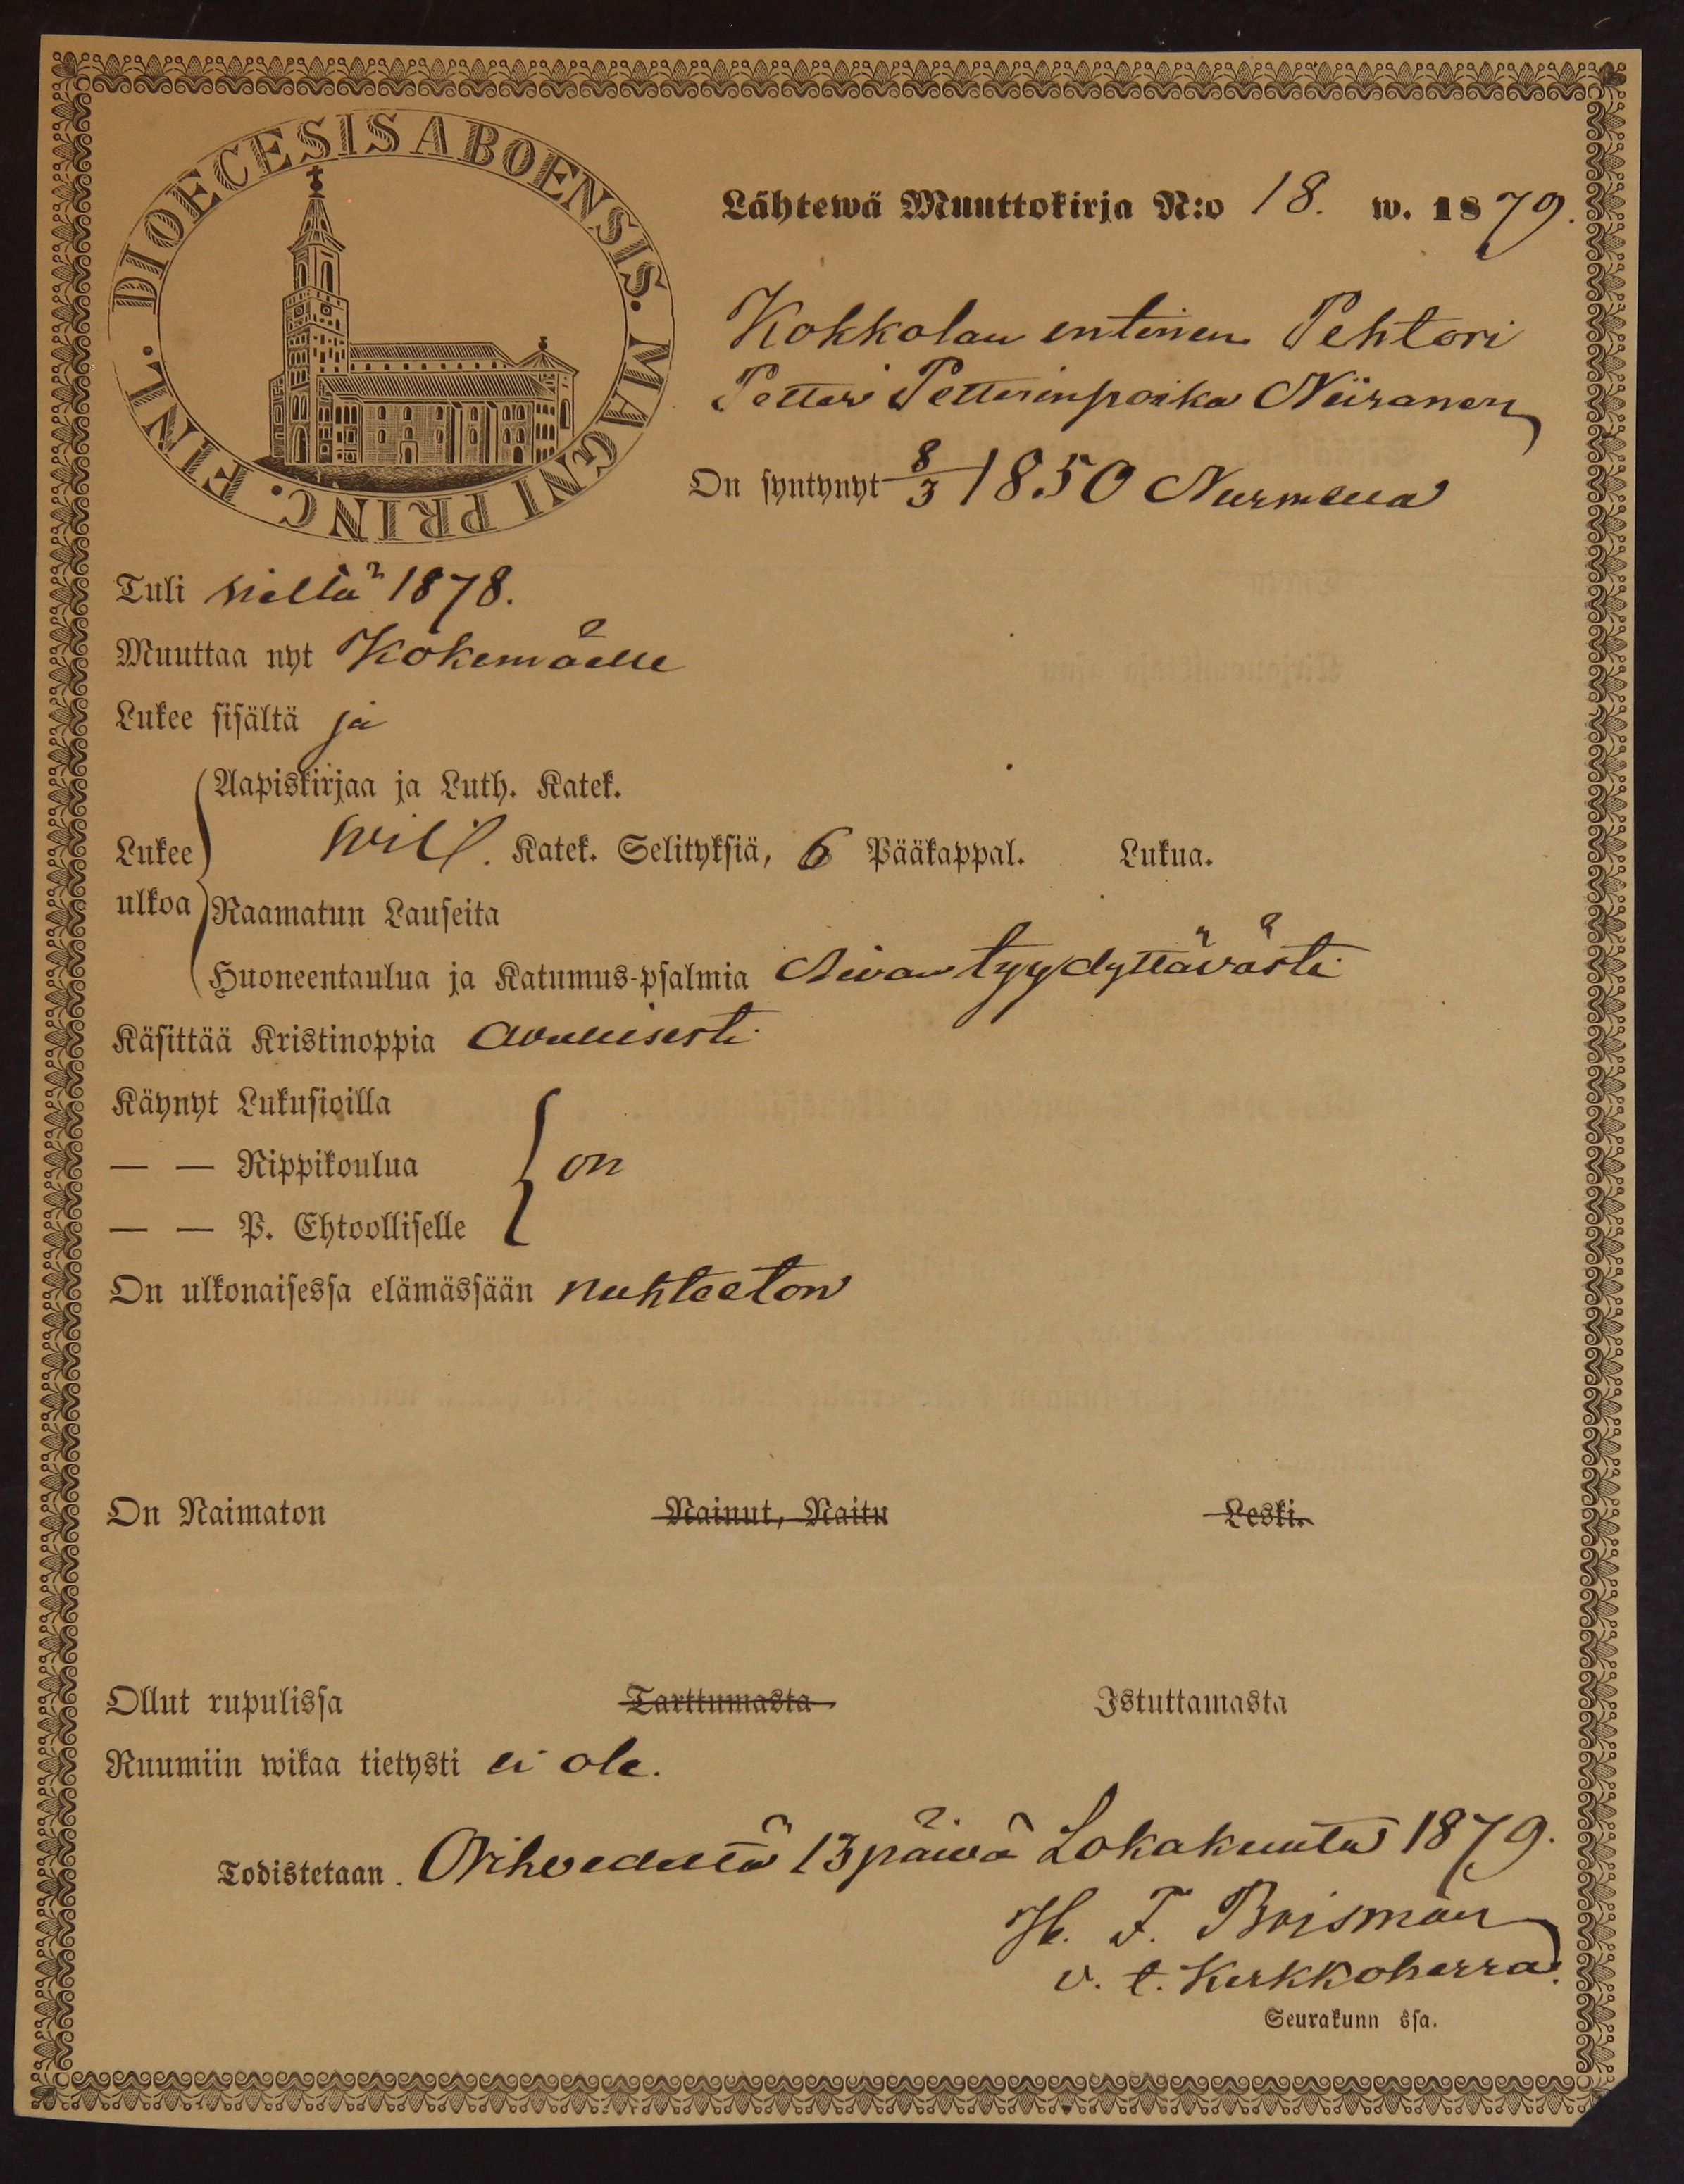 DIOECESIS ABOENSIS. MAGNI PRINC. FINL.
Lähtewä Muuttokirja N:o 18. w. 1879.
Kokkolan entinen Pehtori
Petter Petterinpoika Niiranen
On syntynyt 8/3 1850 Nurmessa
Tuli sieltä 1878.
Muuttaa nyt Kokemäelle
Lukee sisältä ja
Aapiskirjaa ja Luth. Katek.
Lukee ulkoa
Katek. Selityksiä, 6 Pääkappal. Lukua.
Raamatun Lauseita
Huoneentaulua ja Katumus-psalmia Aivan tyydyttävästi
Käsittää Kristinoppia avullisesti
Käynyt Lukusioilla
— — Rippikoulua on
— — P. Ehtoolliselle
On ulkonaisessa elämässään nuhteeton
On Naimaton Nainut, Naitu Leski.
Ollut rupulissa Tarttumasta Istuttamasta
Ruumiin wikaa tietysti ei ole.
Todistetaan. Orihvedellä 13 päivä Lokakuuta 1879.
H. F. Boisman
v. t. Kirkkoherra.
Seurakunn ssa.